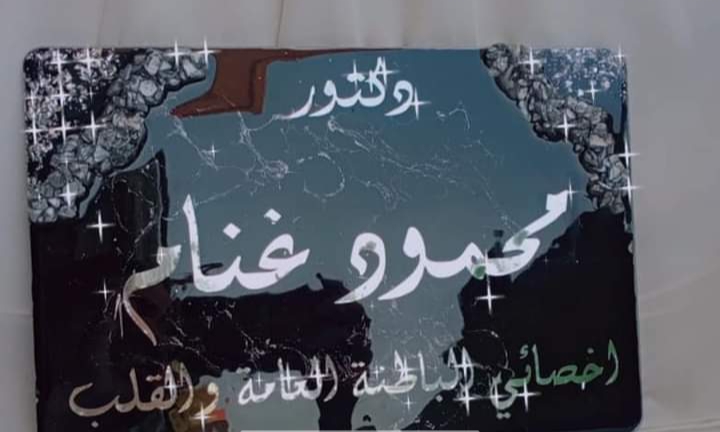 دكتور
محمود غنام
اخصائي الباطنة العامة والقلب